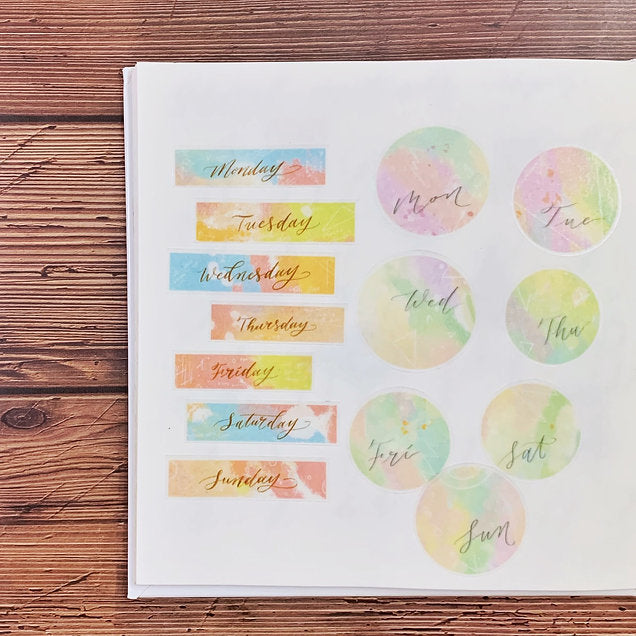 Monday
Tuesday
Wednesday
Thursday
Friday
Saturday
Sunday
Mon
Tue
Wed
Thu
Fri
Sat
Sun